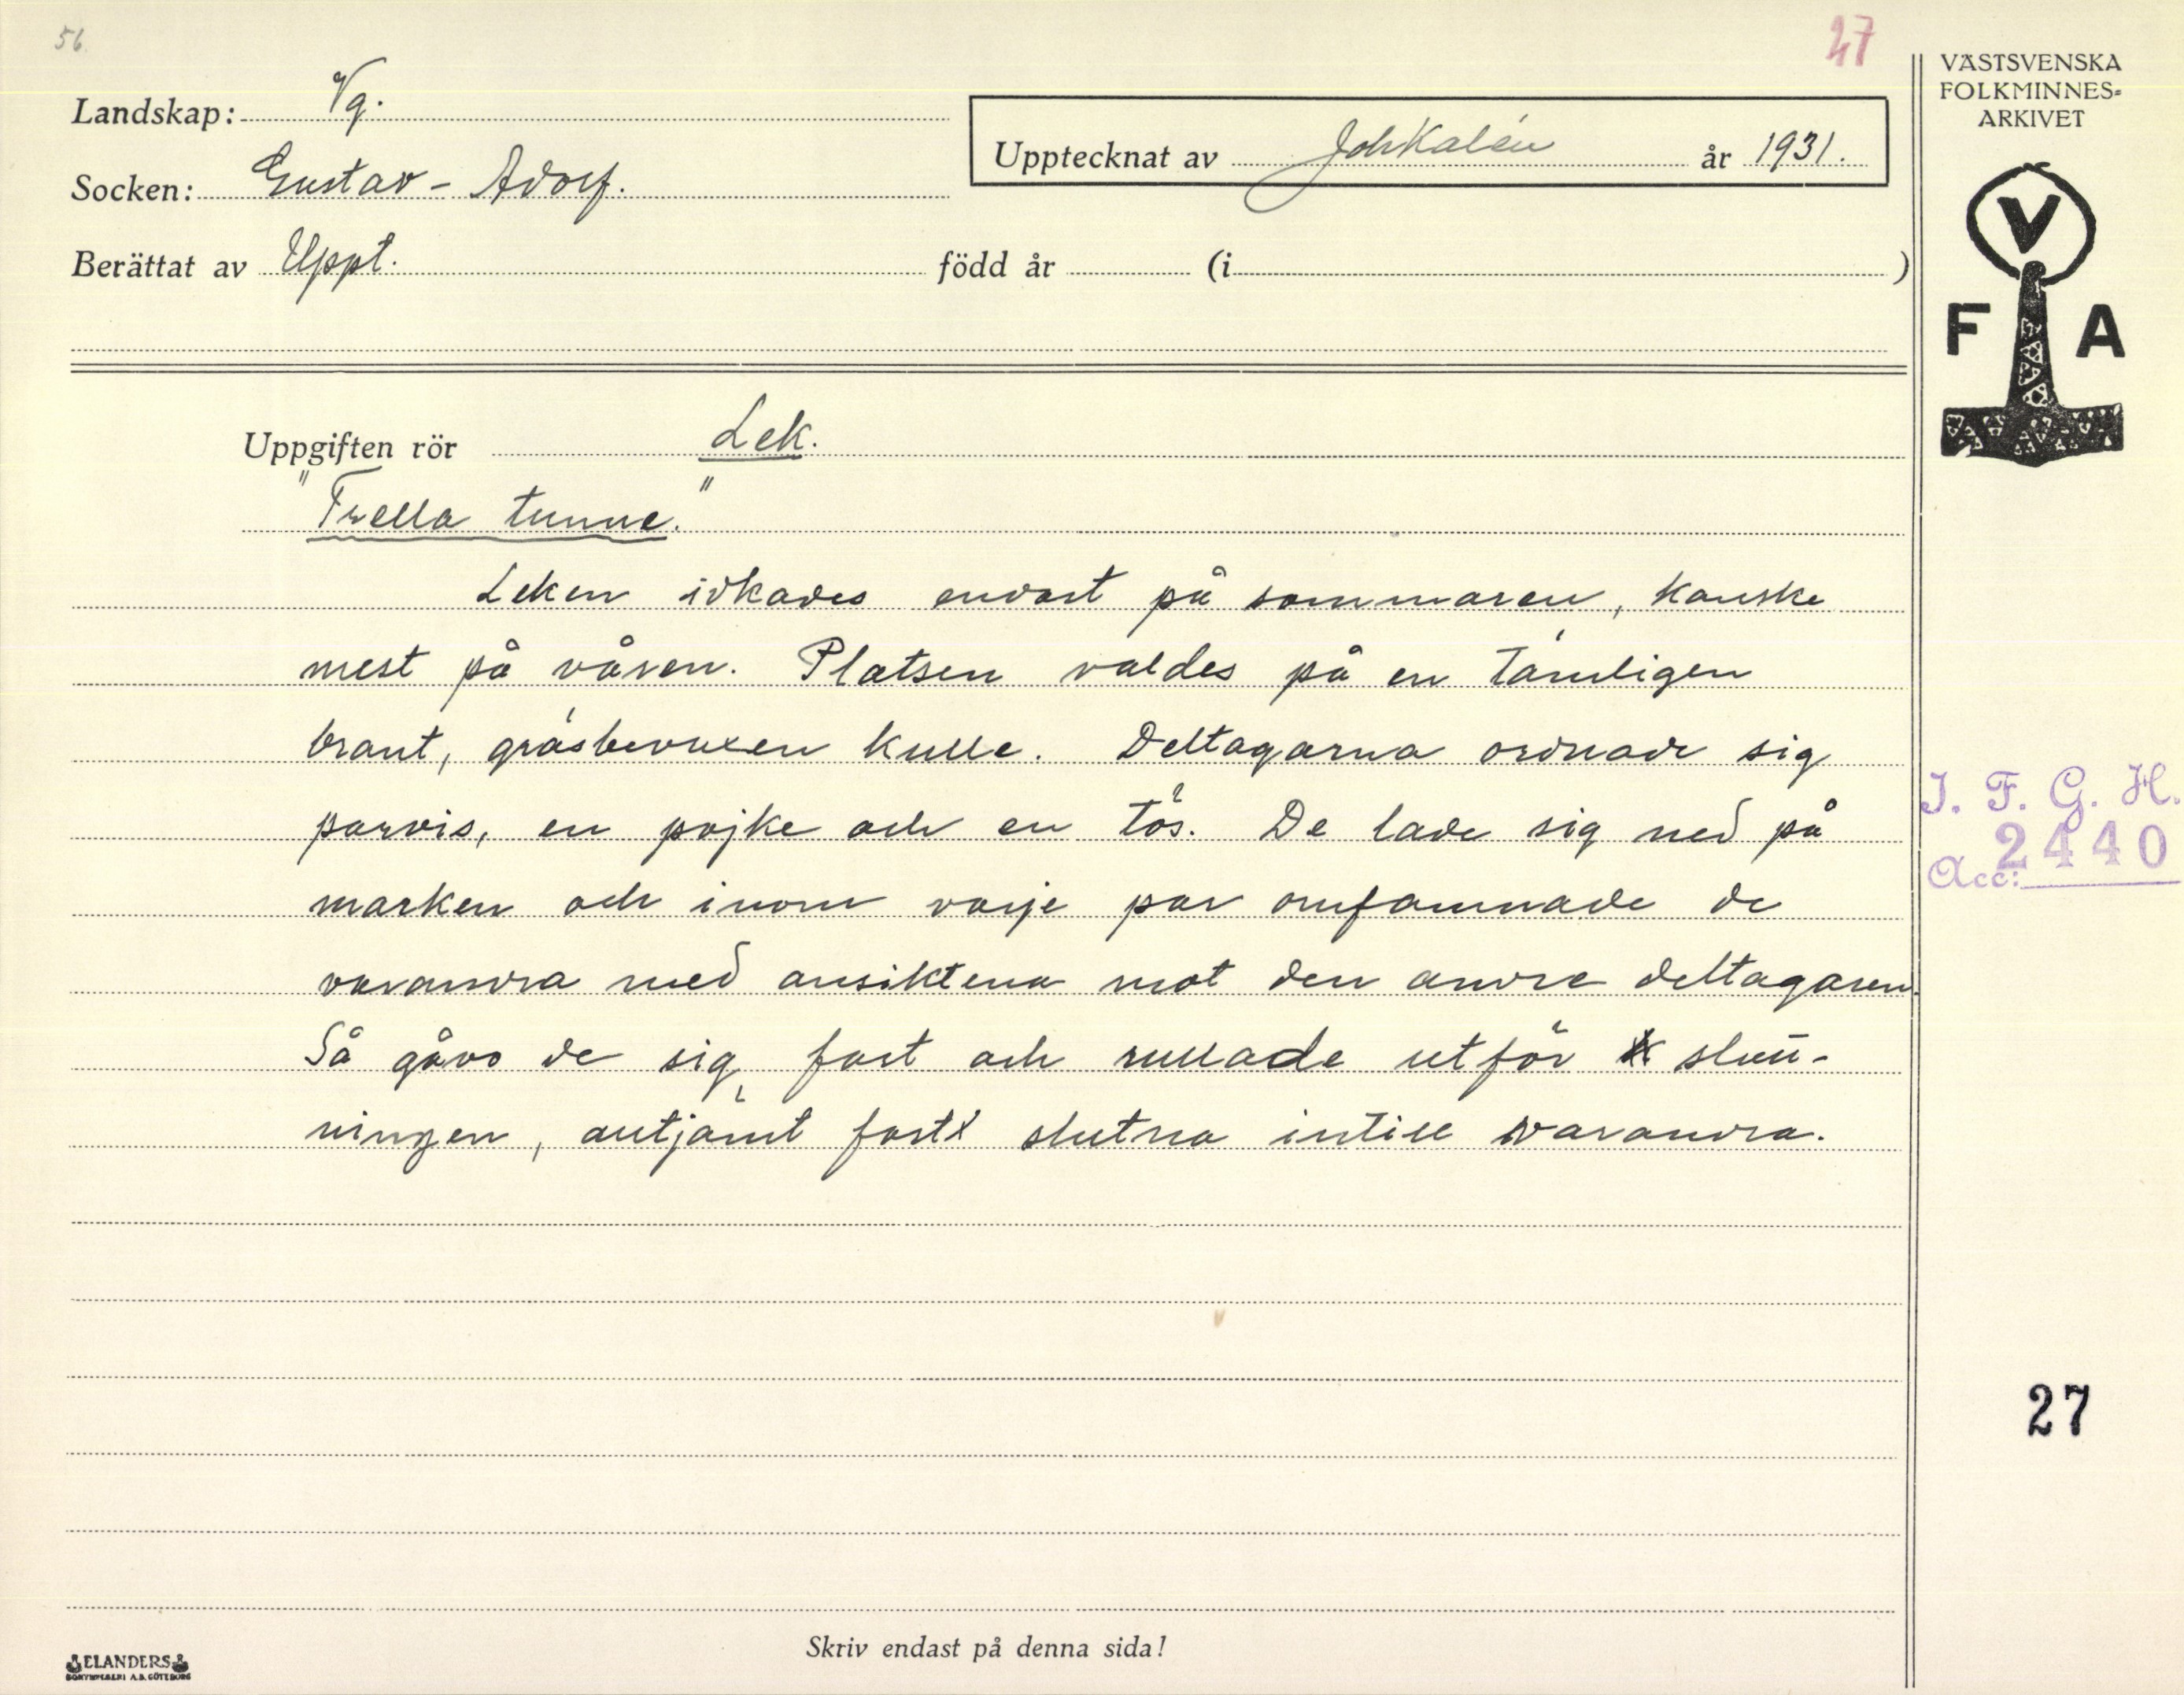 56.
27
Landskap: Vg.
Socken: Gustav-Adolf.
Upptecknat av Joh Kalén år 1931.
Berättat av Uppt. född år (i )
VÄSTSVENSKA
FOLKMINNES-
ARKIVET
V
F A
Uppgiften rör Lek.
"Trella tunne."
Leken idkades endast på sommaren, kanske
mest på våren. Platsen valdes på en tämligen
brant, gräsbevuxen kulle. Deltagarna ordnade sig
parvis, en pojke och en tös. De lade sig ned på
marken och inom varje par omfamnade de
varandra med ansiktena mot den andre deltagaren.
Så gåvo de sig fart och rullade utför slutt-
ningen, alltjämt fast slutna intill varandra.
I. F. G. H.
Acc: 2440
27
Skriv endast på denna sida!
ELANDERS
BOKTRYCKERI A.B. GÖTEBORG